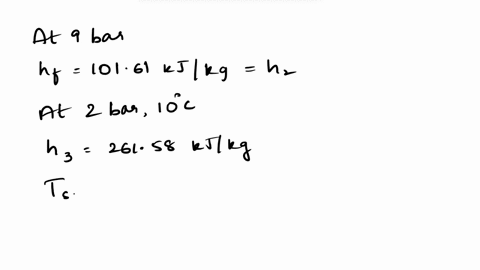 At 9 bar
hf = 101.61 kJ/kg = h2
At 2 bar, 10°C
h3 = 261.58 kJ/kg
Ts